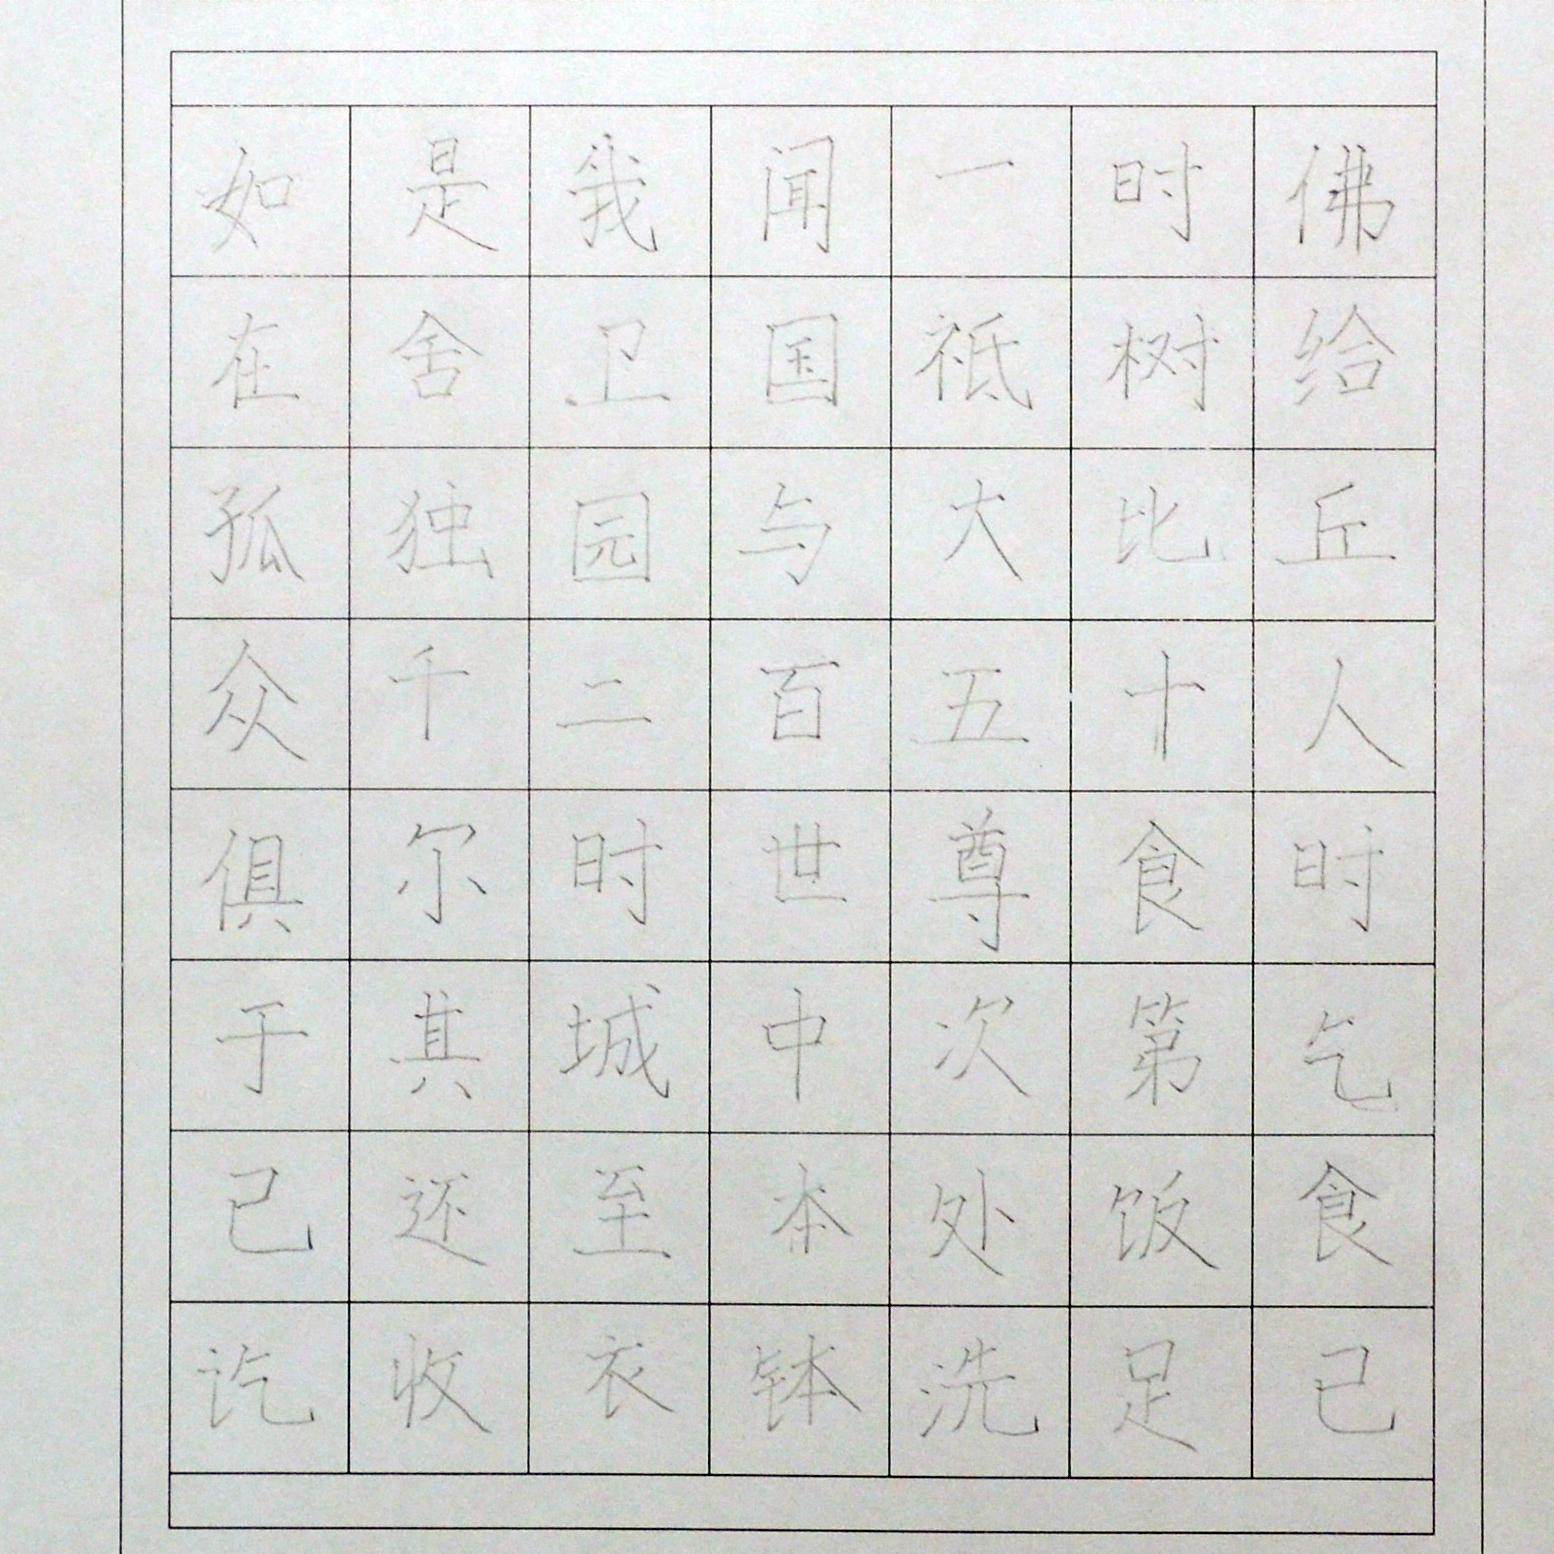 如是我闻一时佛
在舍卫国祇树给
孤独园与大比丘
众千二百五十人
俱尔时世尊食时
于其城中次第乞
已还至本处饭食
讫收衣钵洗足已